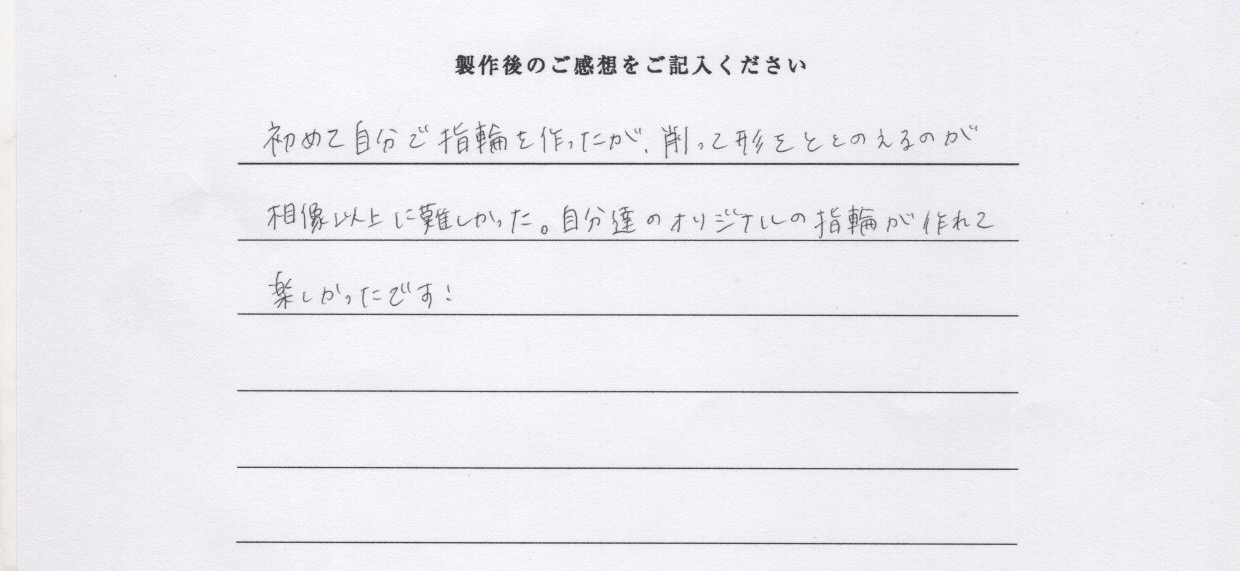 製作後のご感想をご記入ください
初めて自分で指輪を作ったが、削って形をととのえるのが
相像以上に難しかった。自分達のオリジナルの指輪が作れて
楽しかったです!